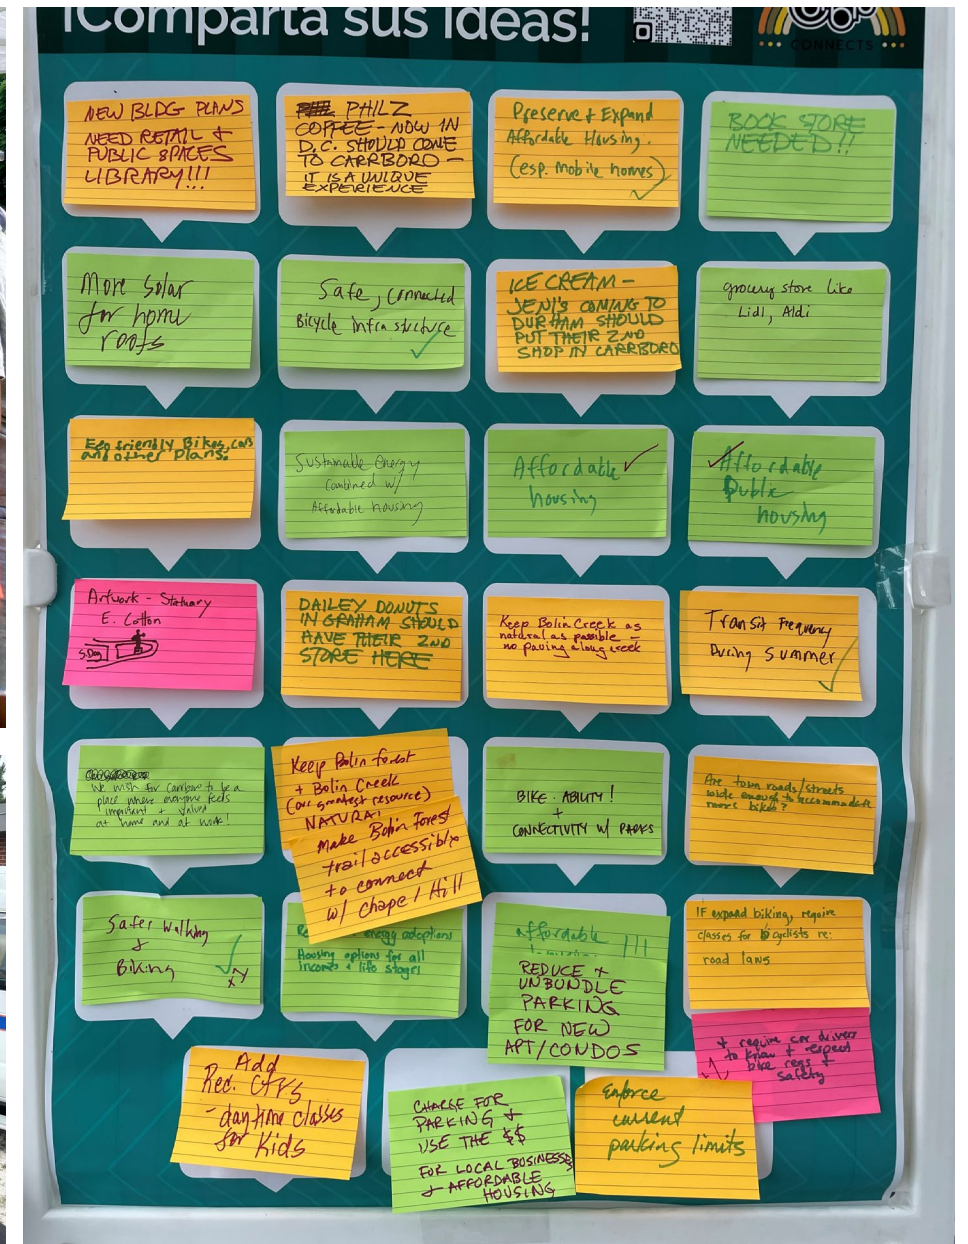 ¡Comparta sus ideas!
CONNECTS
NEW BLDG PLANS
NEED RETAIL &
PUBLIC SPACES
LIBRARY!!!
PHILZ
COFFEE - NOW IN
D.C. SHOULD COME
TO CARRBORO -
IT IS A UNIQUE
EXPERIENCE
Preserve & Expand
Affordable Housing.
(esp. Mobile homes)
BOOK STORE
NEEDED!!
More Solar
for home
roofs
Safe, Connected
Bicycle Infrastructure
ICE CREAM -
JENI'S COMING TO
DURHAM SHOULD
PUT THEIR 2ND
SHOP IN CARRBORO
grocery store like
Lidl, Aldi
Eco friendly Bikes, cars
and other plans.
Sustainable energy
combined w/
Affordable housing
Affordable
housing
Affordable
Public
housing
Artwork - Statuary
E. Cotton
S.Dog
DAILEY DONUTS
IN GRAHAM SHOULD
HAVE THEIR 2ND
STORE HERE
Keep Bolin Creek as
natural as possible -
no paving along creek
Transit Frequency
During Summer
We wish for Carrboro to be a
place where everyone feels
important & valued
at home and at work!
Keep Bolin forest
+ Bolin Creek
(our greatest resource)
NATURAL
Make Bolin Forest
trail accessible
to connect
w/ Chapel Hill
BIKE-ABILITY!
+
CONNECTIVITY W/ PARKS
Are town roads/streets
wide enough to accommodate
more bikes?
Safer Walking
&
Biking
energy adoptions
Housing options for all
incomes & life stages
affordable !!!
REDUCE &
UNBUNDLE
PARKING
FOR NEW
APT/CONDOS
IF expand biking, require
classes for bicyclists re:
road laws
+ require car drivers
to know & respect
bike regs &
safety
Add
Rec. CTRS
- daytime classes
for Kids
CHARGE FOR
PARKING &
USE THE $$
FOR LOCAL BUSINESSES
& AFFORDABLE
HOUSING
Enforce
current
parking limits